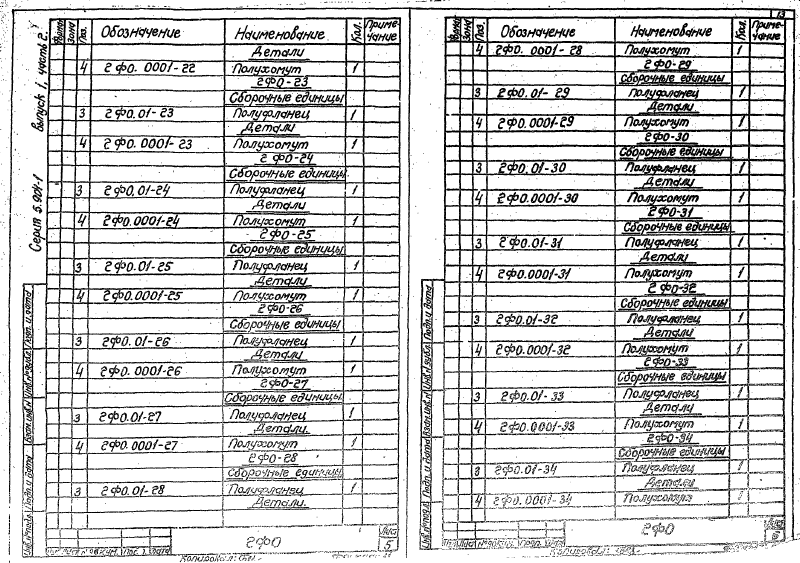 Серия 5.904-1 Выпуск 1, часть 2.
Форма Зона Поз. Обозначение Наименование Кол. Примечание
Детали
4 2ФО.0001-22 Полухомут 1
2ФО-23
Сборочные единицы
3 2ФО.01-23 Полуфланец 1
Детали
4 2ФО.0001-23 Полухомут 1
2ФО-24
Сборочные единицы
3 2ФО.01-24 Полуфланец 1
Детали
4 2ФО.0001-24 Полухомут 1
2ФО-25
Сборочные единицы
3 2ФО.01-25 Полуфланец 1
Детали
4 2ФО.0001-25 Полухомут 1
2ФО-26
Сборочные единицы
3 2ФО.01-26 Полуфланец 1
Детали
4 2ФО.0001-26 Полухомут 1
2ФО-27
Сборочные единицы
3 2ФО.01-27 Полуфланец 1
Детали
4 2ФО.0001-27 Полухомут 1
2ФО-28
Сборочные единицы
3 2ФО.01-28 Полуфланец 1
Детали
Инв.№подл. Подп. и дата Взам.инв.№ Инв.№дубл. Подп. и дата
2ФО
Лист
5
Копировал:
13
Форма Зона Поз. Обозначение Наименование Кол. Примечание
4 2ФО.0001-28 Полухомут 1
2ФО-29
Сборочные единицы
3 2ФО.01-29 Полуфланец 1
Детали
4 2ФО.0001-29 Полухомут 1
2ФО-30
Сборочные единицы
3 2ФО.01-30 Полуфланец 1
Детали
4 2ФО.0001-30 Полухомут 1
2ФО-31
Сборочные единицы
3 2ФО.01-31 Полуфланец 1
Детали
4 2ФО.0001-31 Полухомут 1
2ФО-32
Сборочные единицы
3 2ФО.01-32 Полуфланец 1
Детали
4 2ФО.0001-32 Полухомут 1
2ФО-33
Сборочные единицы
3 2ФО.01-33 Полуфланец 1
Детали
4 2ФО.0001-33 Полухомут 1
2ФО-34
Сборочные единицы
3 2ФО.01-34 Полуфланец 1
Детали
4 2ФО.0001-34 Полухомут 1
Инв.№подл. Подп. и дата Взам.инв.№ Инв.№дубл. Подп. и дата
2ФО
Лист
6
Копировал: